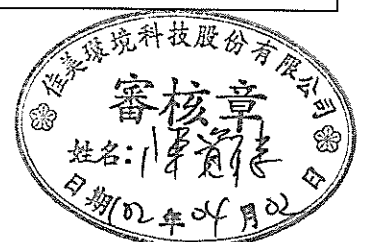 佳美環境科技股份有限公司
審核章
姓名：
日期102年04月02日